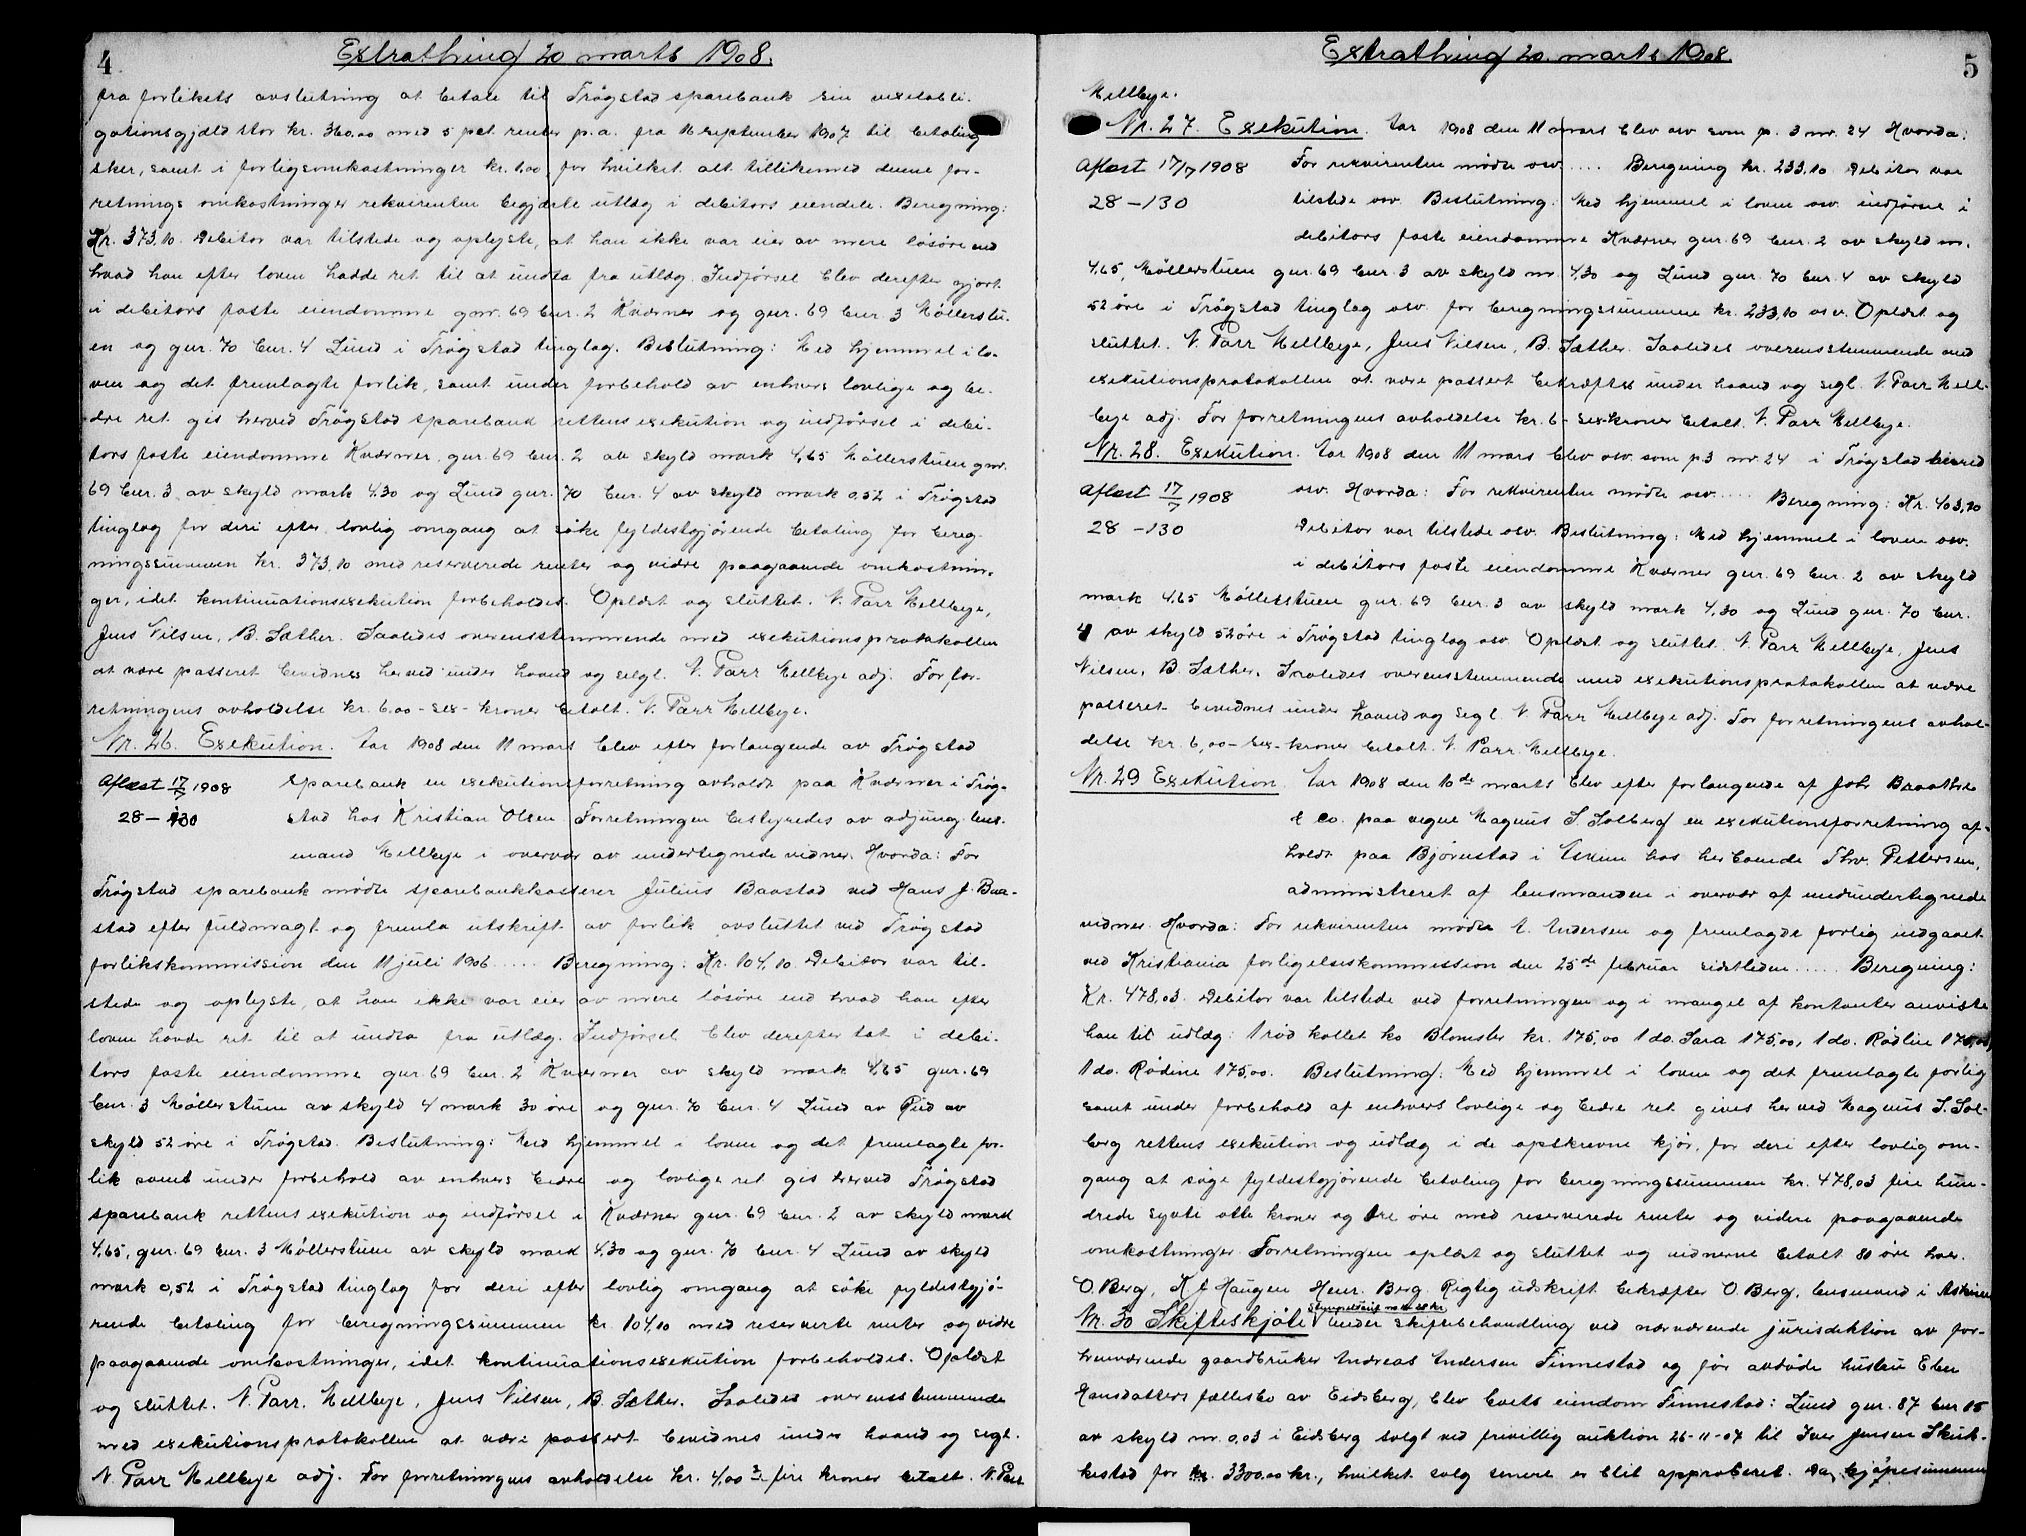 4
Extrathing 20 marts 1908.
fra forlikets avslutning at betale til Trøgstad sparebank sin vexelobli-
gationsgjæld stor kr. 360.00 med 5 pct. renter p.a. fra 16 september 1907 til betaling
sker, samt i forligsomkostninger kr. 1,00 for hvilket alt tillikemed denne for-
retnings omkostninger rekvirenten begjærte utlæg i debitors eiendele. Beregning:
Kr. 373,10. Debitor var tilstede og oplyste, at han ikke var eier av mere løsøre end
hvad han efter loven hadde ret til at undta fra utlæg. Indførsel blev derefter gjort
i debitors faste eiendomme gnr. 69 bnr. 2 Kværner og gnr. 69 bnr. 3 Møllerstu-
en og gnr. 70 bnr. 4 Lund i Trøgstad tinglag. Beslutning: Med hjemmel i lo-
ven og det fremlagte forlik, samt under forbehold av enhvers lovlige og be-
dre ret gis herved Trøgstad sparebank rettens exekution og indførsel i debi-
tors faste eiendomme Kværner, gnr. 69 bnr. 2 av skyld mark 4,65 Møllerstuen gnr.
69 bnr. 3 av skyld mark 4.30 og Lund gnr. 70 bnr. 4 av skyld mark 0,52 i Trøgstad
tinglag for deri efter lovlig omgang at søke fyldestgjørende betaling for bereg-
ningssummen kr. 373,10 med reserverede renter og vidre paagaaende omkostnin-
ger, idet kontinuationsexekution forbeholdes. Oplæst og sluttet. N. Parr Mellbye,
Jens Nilsen, B. Sæther. Saaledes overensstemmende med exekutionsprotokollen
at være passeret bevidnes herved under haand og segl. N. Parr Mellbye adj. For for-
retningens avholdelse kr. 6.00 - sex - kroner betalt. N. Parr Mellbye.
Nr. 26. Exekution. Aar 1908 den 11 mars blev efter forlangende av Trøgstad
Aflæst 17/7 1908 sparebank en exekutionsforretning avholdt paa Kværner i Trøg-
28 - 130 stad hos Kristian Olsen. Forretningen bestyredes av adjung. lens-
mand Mellbye i overvær av undertegnede vidner. Hvorda: For
Trøgstad sparebank mødte sparebankkasserer Julius Baastad ved Hans J. Baa-
stad efter fuldmagt og fremla utskrift av forlik avsluttet ved Trøgstad
forlikskommission den 11 juli 1906 ..... Beregning: Kr. 104,10. Debitor var til-
stede og oplyste, at han ikke var eier av mere løsøre end hvad han efter
loven havde ret til at undta fra utlæg. Indførsel blev derefter tat i debi-
tors faste eiendomme gnr. 69 bnr. 2 Kværner av skyld mark 4,65 gnr. 69
bnr. 3 Møllerstuen av skyld 4 mark 30 øre og gnr. 70 bnr. 4 Lund av Rud av
skyld 52 øre i Trøgstad. Beslutning: Med hjemmel i loven og det fremlagte for-
lik samt under forbehold av enhvers bedre og lovlige ret gis herved Trøgstad
sparebank rettens exekution og indførsel i Kværner gnr. 69 bnr. 2 av skyld mark
4,65, gnr. 69 bnr. 3 Møllerstuen av skyld mark 4,30 og gnr. 70 bnr. 4 Lund av skyld
mark 0,52 i Trøgstad tinglag for deri efter lovlig omgang at søke fyldestgjø-
rende betaling for beregningssummen kr. 104,10 med reserverte renter og vidre
paagaaende omkostninger, idet kontinuationsexekution forbeholdes. Oplæst
og sluttet. N. Parr. Mellbye, Jens Nilsen, B. Sæther. Saaledes overensstemmende
med exekutionsprotokollen at være passert bevidnes under haand og segl.
N. Parr Mellbye adj. For forretningens avholdelse kr. 4,00 fire kroner betalt. N. Parr
5
Extrathing 20. marts 1908.
Mellbye.
Nr. 27. Exekution. Aar 1908 den 11 mars blev osv som p. 3 nr. 24 Hvorda:
Aflæst 17/7 1908 For rekvirenten mødte osv. .... Beregning kr. 233,10 Debitor var
28 - 130 tilstede osv. Beslutning: Med hjemmel i loven osv. indførsel i
debitors faste eiendomme Kværner gnr. 69 bnr. 2 av skyld m.
4,65, Møllerstuen gnr. 69 bnr. 3 av skyld m. 4,30 og Lund gnr. 70 bnr. 4 av skyld
52 øre i Trøgstad tinglag osv. for beregningssummen kr. 233,10 osv. Oplæst og
sluttet. N. Parr Mellbye, Jens Nilsen, B. Sæther. Saaledes overensstemmende med
exekutionsprotokollen at være passert bekræftes under haand og segl. N. Parr Mell-
bye adj. For forretningens avholdelse kr. 6 - sex-kroner betalt. N. Parr Mellbye.
Nr. 28. Exekution. Aar 1908 den 11 mars blev osv. som p 3 nr. 24 i Trøgstad
Aflæst 17/7 1908 osv. Hvorda: For rekvirenten mødte osv. .... Beregning: Kr. 403,10
28 - 130 Debitor var tilstede osv. Beslutning: Med hjemmel i loven osv.
i debitors faste eiendomme Kværner gnr. 69 bnr. 2 av skyld
mark 4,65 Møllerstuen gnr. 69 bnr. 3 av skyld mark 4,30 og Lund gnr. 70 bnr.
4 av skyld 52 øre i Trøgstad tinglag osv. Oplæst og sluttet. N. Parr Mellbye, Jens
Nilsen, B. Sæther. Saaledes overensstemmende med exekutionsprotokollen at være
passeret bevidnes under haand og segl. N. Parr Mellbye adj. For forretningens avhol-
delse kr. 6,00 - sex - kroner betalt. N. Parr Mellbye.
Nr. 29 Exekution. Aar 1908 den 10de marts blev efter forlangende af Johs Braathen
& Co. paa vegne Magnus S. Solberg en exekutionsforretning af-
holdt paa Bjørnstad i Askim hos herboende Thv. Pettersen,
administreret af lensmanden i overvær af medundertegnede
vidner. Hvorda: For rekvirenten mødte A. Andersen og fremlagde forlig indgaaet
ved Kristiania forligelseskommission den 25de februar sidstleden ..... Beregning:
Kr. 478,03. Debitor var tilstede ved forretningen og i mangel af kontanter anviste
han til udlæg: 1 rød kollet ko Blomster kr. 175,00 1 do. Sara 175,00, 1 do. Rødlin 175,00,
1 do. Rødine 175,00. Beslutning. Med hjemmel i loven og det fremlagte forlig
samt under forbehold af enhvers lovlige og bedre ret gives herved Magnus S. Sol-
berg rettens exekution og udlæg i de opskrevne kjør, for deri efter lovlig om-
gang at søge fyldestgjørende betaling for beregningssummen kr. 478,03 fire hun-
drede sytti otte kroner og tre øre med reserverede renter og videre paagaaende
omkostninger. Forretningen oplæst og sluttet og vidnerne betalt 80 øre hver.
O. Berg, K A Haugen Henr. Berg. Rigtig udskrift bekræfter O. Berg, lensmand i Askim
Nr. 30 Skifteskjøte. Under skiftebehandling ved nærværende jurisdiktion av for-
henværende gaardbruker Andreas Andersen Finnestad og før avdøde hustru Elen
Hansdatters fællesbo av Eidsberg, blev boets eiendom Finnestad: Lund gnr. 87 bnr 15
av skyld m. 0,03 i Eidsberg solgt ved frivillig auktion 26-11-07 til Iver Jensen Skuk-
kestad for kr. 3300.00 kr., hvilket salg senere er blit approberet. Da kjøpesummen